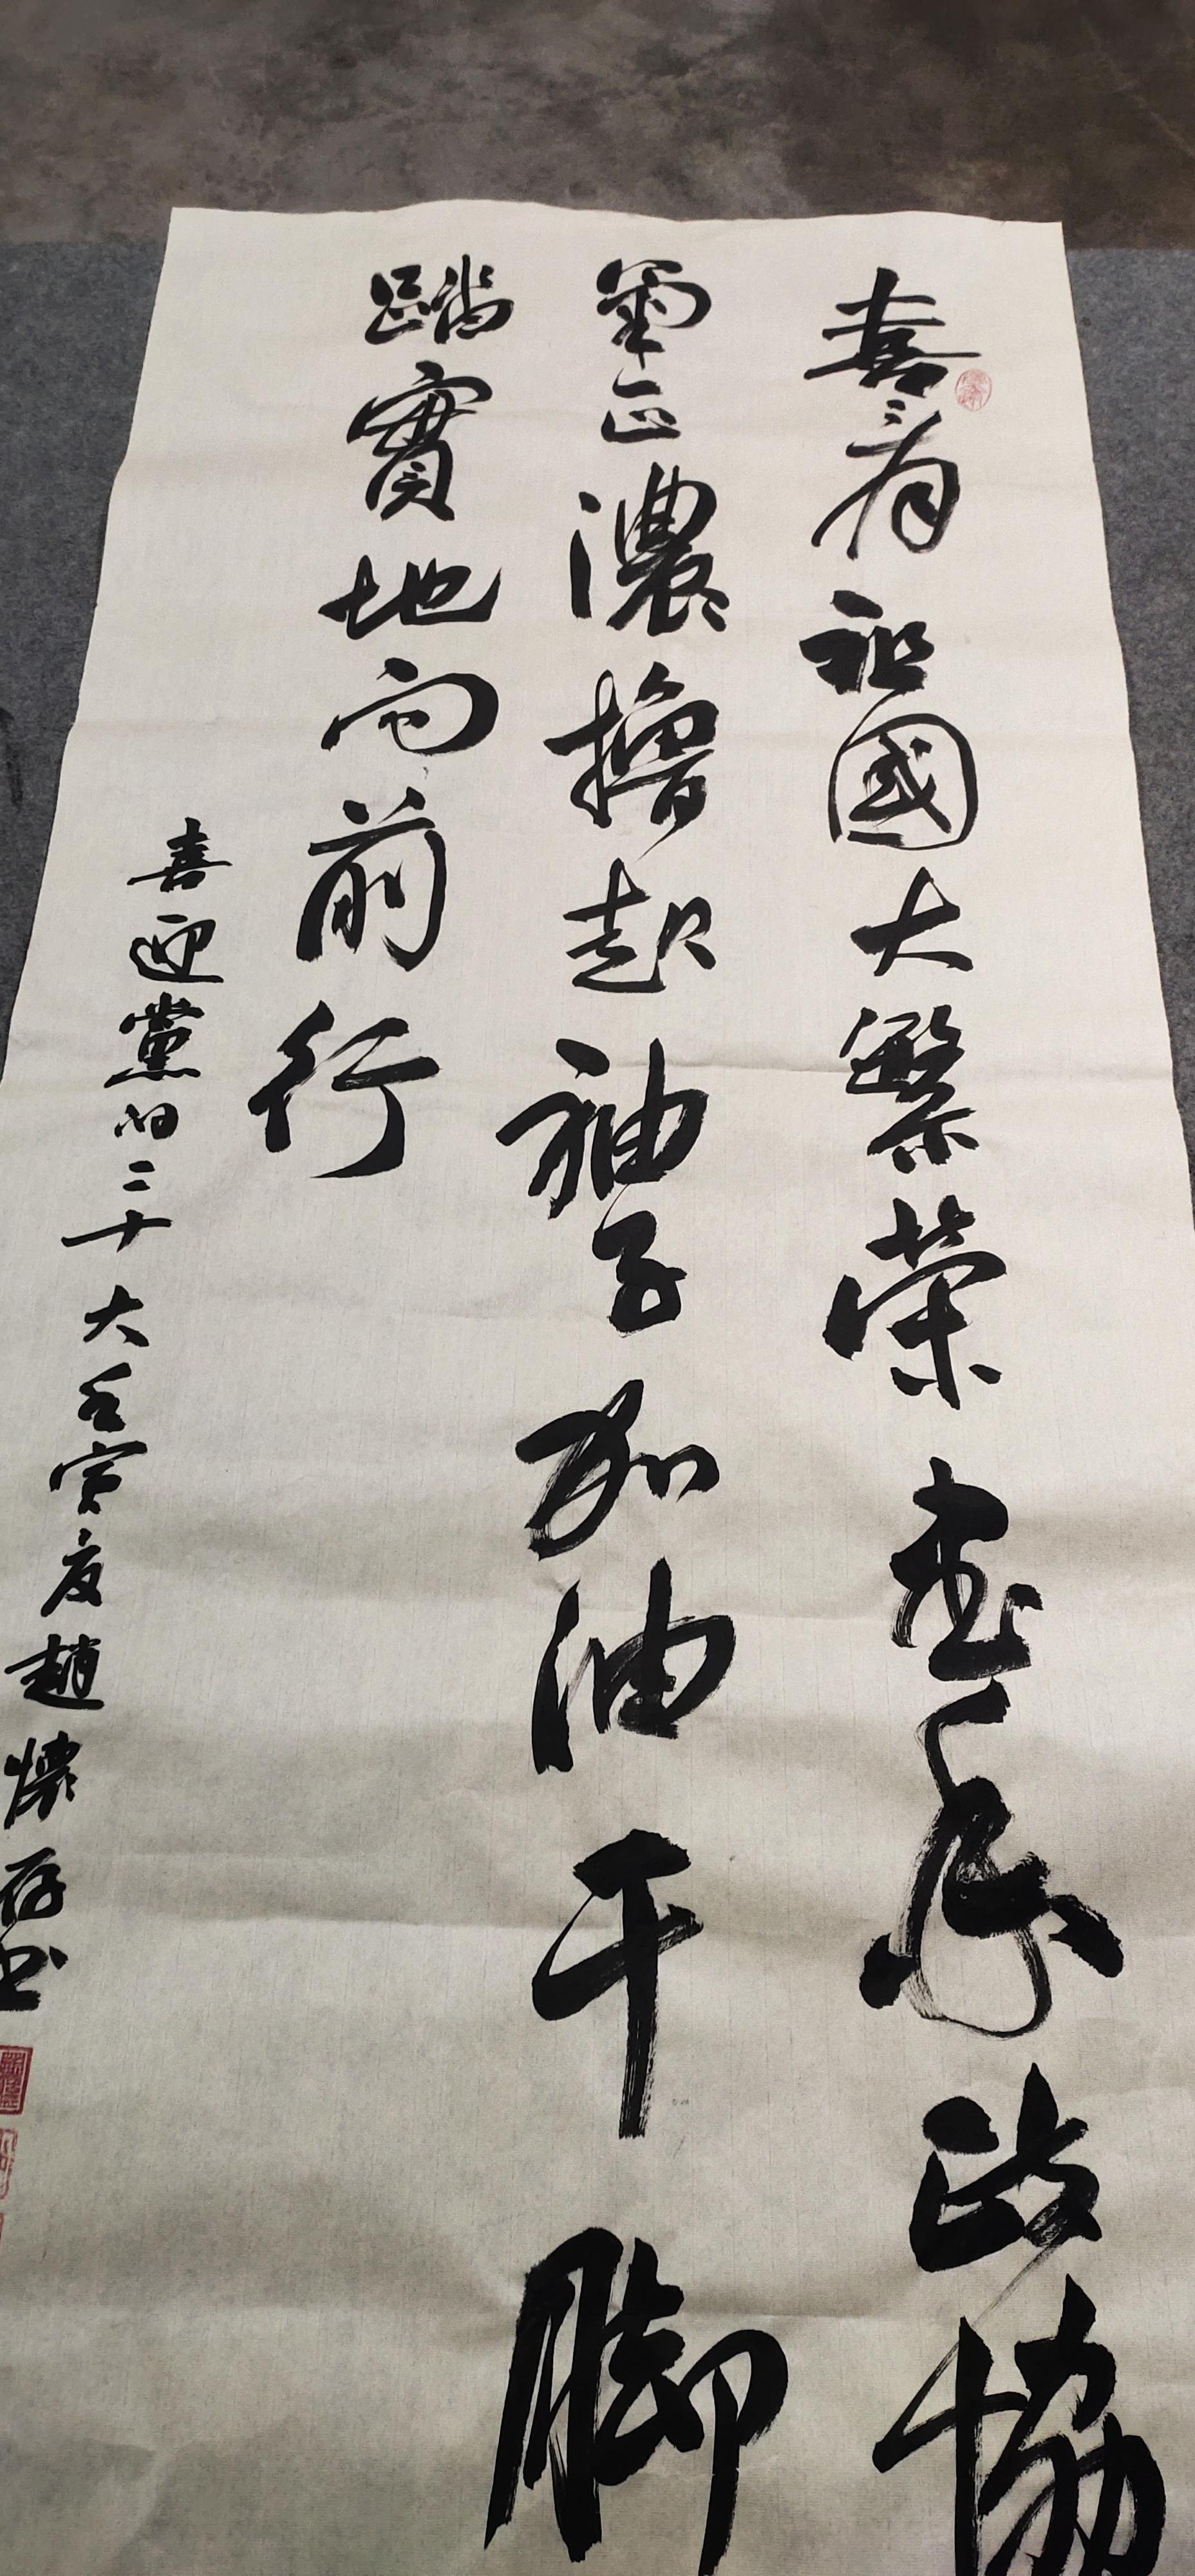 喜看祖國大繁榮書香政協
正濃擼起袖子加油干腳
踏實地向前行
喜迎黨的二十大壬寅夏趙懷存書